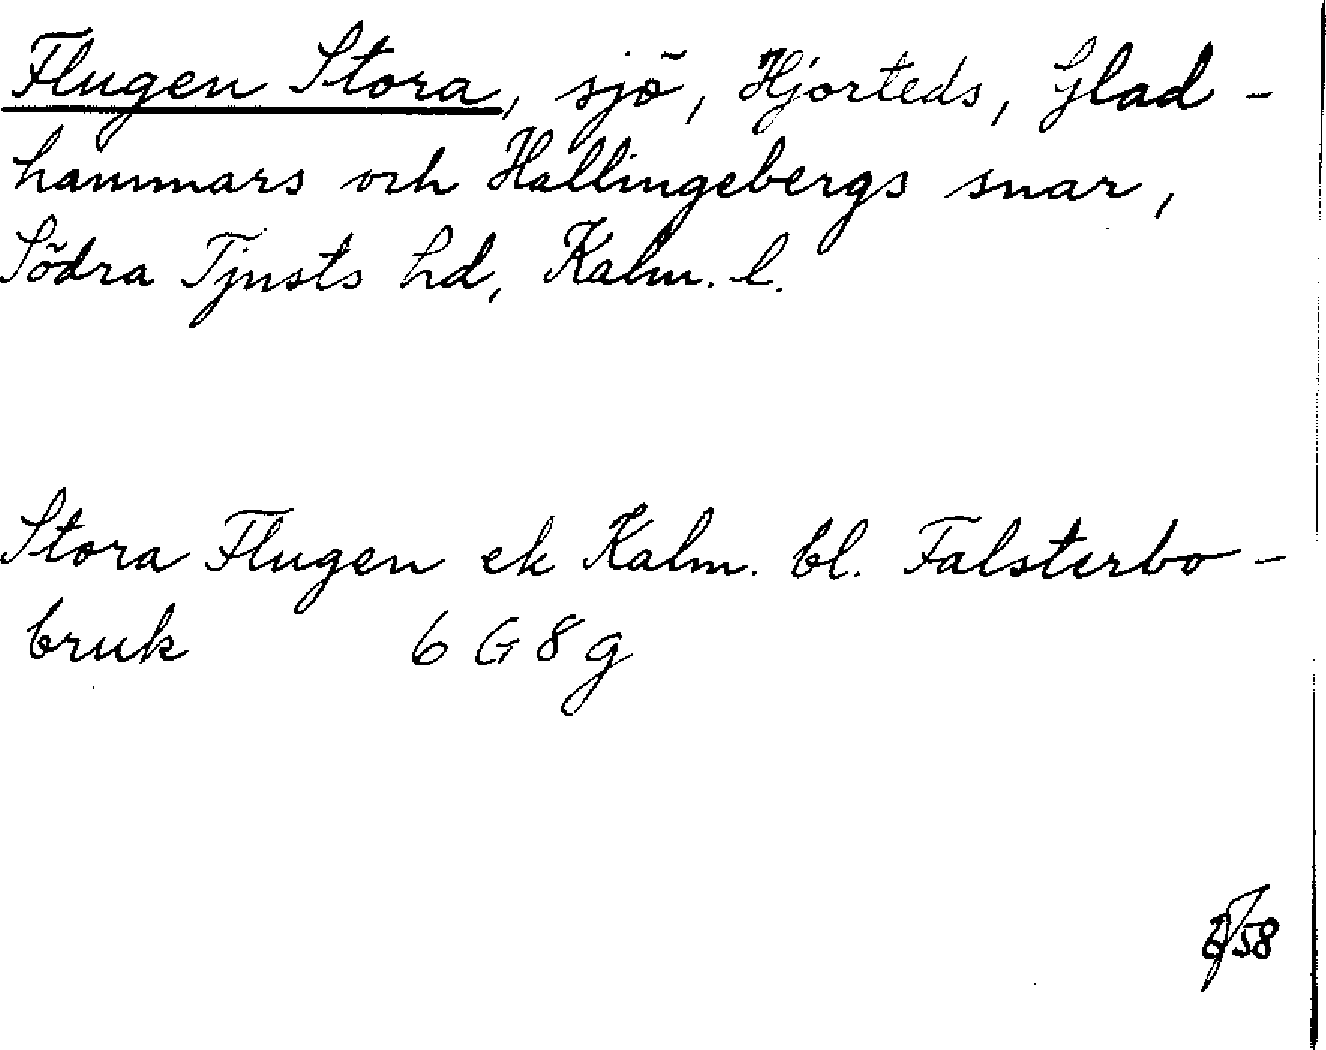 Flugen Stora, sjö, Hjorteds, Glad-
hammars och Hallingebergs snar,
Södra Tjusts hd, Kalm. l.
Stora Flugen ek Kalm. bl. Falsterbo-
bruk 6 G 8 g
58